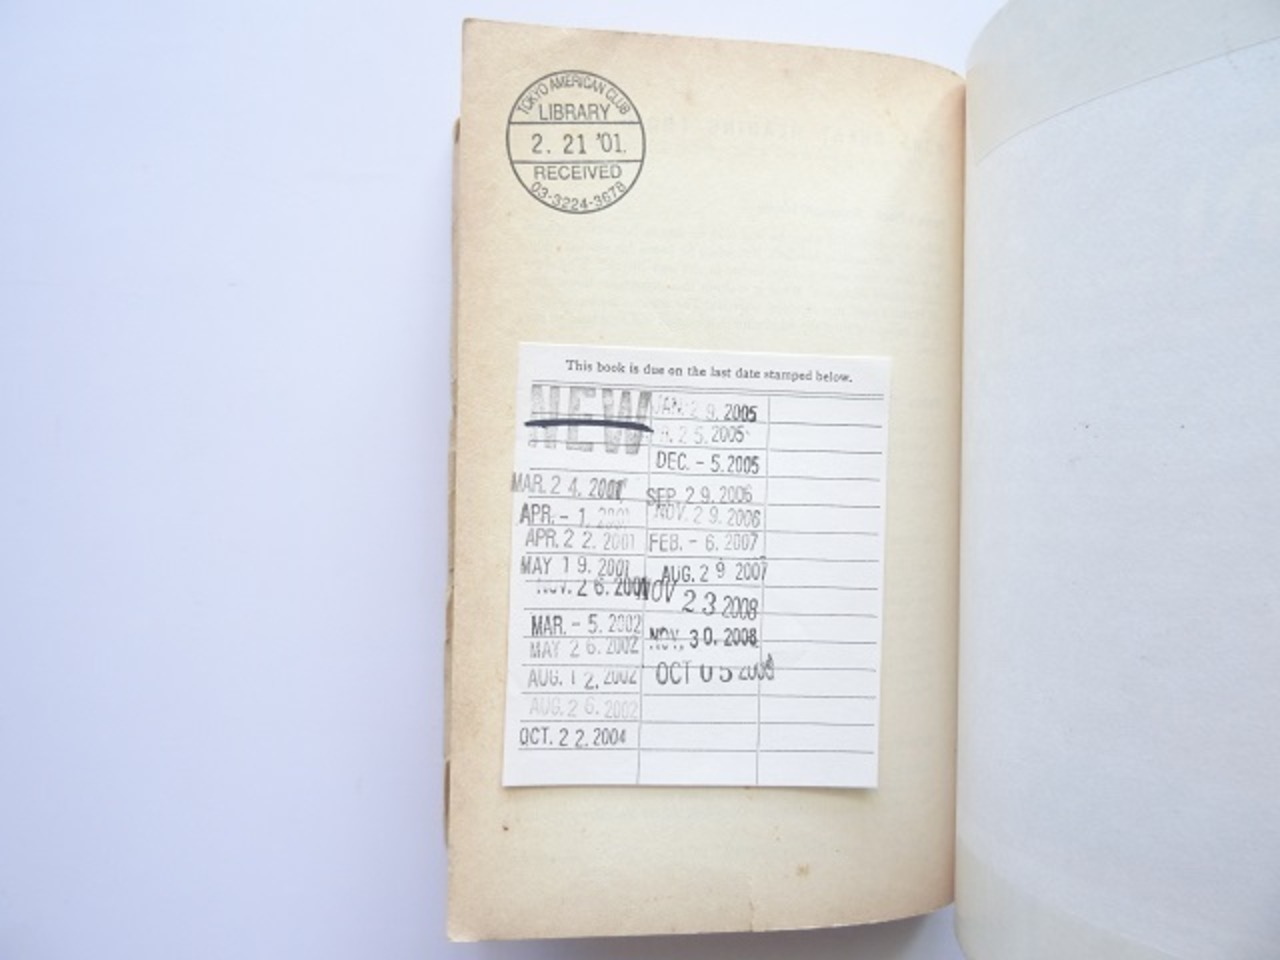 TOKYO AMERICAN CLUB
LIBRARY
2. 21 '01.
RECEIVED
03-3224-3678
This book is due on the last date stamped below.
NEW
MAR. 2 4. 2001
APR. - 1. 2001
APR. 2 2. 2001
MAY 1 9. 2001
NOV. 2 6. 2001
MAR. - 5. 2002
MAY 2 6. 2002
AUG. 1 2. 2002
AUG. 2 6. 2002
OCT. 2 2. 2004
JAN. 2 9. 2005
2 5. 2005
DEC. - 5. 2005
SEP. 2 9. 2006
NOV. 2 9. 2006
FEB. - 6. 2007
AUG. 2 9 2007
NOV 2 3 2008
NOV. 3 0. 2008
OCT 0 5